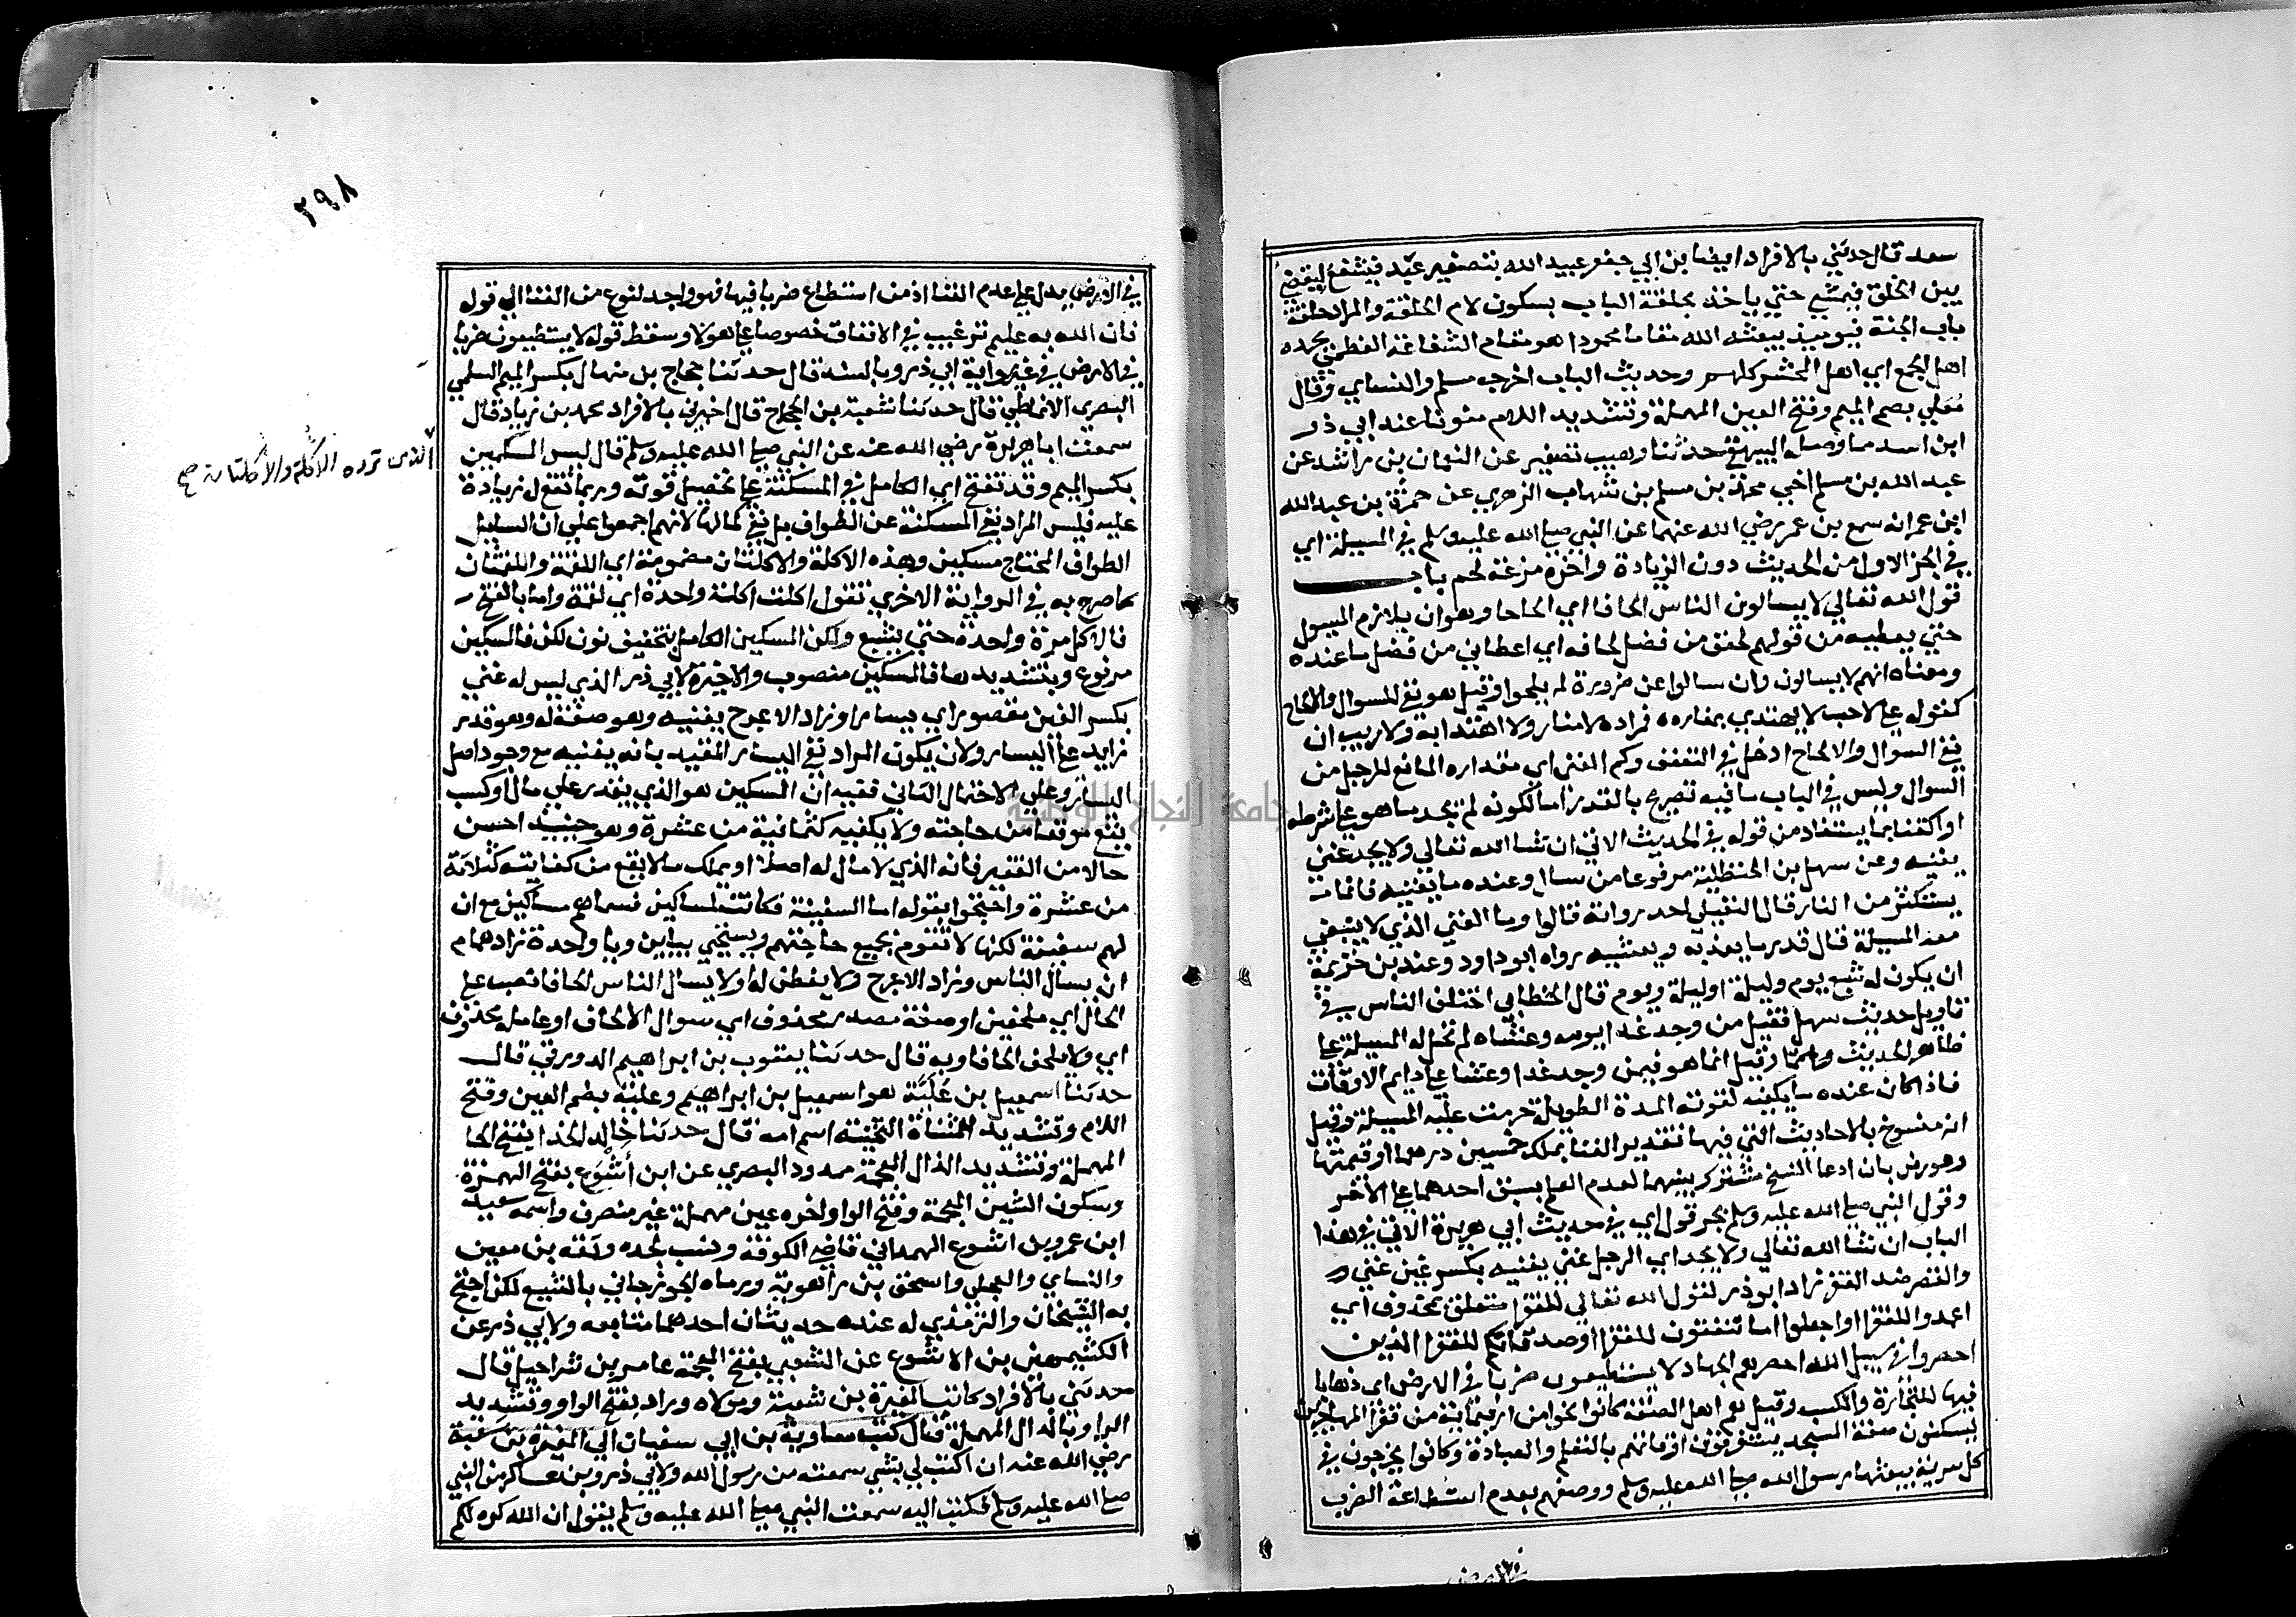 سعد قال حدثني بالافراد ايضا بن ابي جعفر عبيد الله بتصغير عبد فيشفع ليقضي
بين الخلق فيمشي حتي ياخذ بحلقة الباب بسكون لام الحلقة والمراد حلقة
باب الجنة فيوميذ يبعثه الله مقاما محمودا هو مقام الشفاعة العظمي يحمده
اهل الجمع اي اهل المحشر كلهم وحديث الباب اخرجه مسلم والنساي وقال
معلي بضم الميم وفتح العين المهملة وتشديد اللام منونا عند ابي ذر
ابن اسد مما وصله البيهقي حدثنا وهيب تصغير عن النعمان بن راشد عن
عبد الله بن مسلم اخي محمد بن مسلم بن شهاب الزهري عن حمزة بن عبد الله
ابن عمر انه سمع بن عمر رضي الله عنهما عن النبي صلى الله عليه وسلم في المسيلة اي
في الجز الاول من الحديث دون الزيادة واخره مزعة لحم باب
قول الله تعالي لا يسالون الناس الحافا اي الحاحا وهو ان يلازم المسيول
حتي يعطيه من قولهم لحفني من فضل لحافه اي اعطاني من فضل ما عنده
ومعناه انهم لا يسالون وان سالوا عن ضرورة لم يلحوا وقيل هو نفي للسوال والالحاح
كقوله على لاحب لا يهتدي بمناره فمراده لا منار ولا اهتدا به ولا ريب ان
نفي السوال والالحاح ادخل في التعفف وكم الغني اي مقداره المانع للرجل من
السوال وليس في الباب ما فيه تصريح بالقدر اما لكونه لم يجد ما هو على شرطه
او اكتفا بما يستفاد من قوله في الحديث الاتي ان شا الله تعالي ولا يجد غني
يغنيه وعن سهل بن الحنظلية مرفوعا من سال وعنده ما يغنيه فانما
يستكثر من النار قال النفيلي احد رواته قالوا وما الغني الذي لا ينبغي
معه المسيلة قال قدر ما يغديه ويعشيه رواه ابو داود وعند بن خزيمة
ان يكون له شبع يوم وليلة او ليلة ويوم قال الخطابي اختلف الناس في
تاويل حديث سهل فقيل من وجد غدا يومه وعشاه لم تحل له المسيلة على
ظاهر الحديث وقيل انما هو فيمن وجد غدا وعشا على دايم الاوقات
فاذا كان عنده ما يكفيه لقوته المدة الطويلة حرمت عليه المسيلة وقيل
انه منسوخ بالاحاديث التي فيها تقدير الغنا بملك خمسين درهما او قيمتها
وعورض بان ادعا النسخ مشترك بينهما لعدم العلم بسبق احدهما على الاخر
وقول النبي صلى الله عليه وسلم بجر قول اي في حديث ابي هريرة الاتي في هذا
الباب ان شا الله تعالي ولا يجد اي الرجل غني يغنيه بكسر غين غني
والقصر ضد الفقر زاد ابو ذر لقول الله تعالي للفقرا متعلق بمحذوف اي
اعمدوا للفقرا او اجعلوا ما تنفقون للفقرا او صدقاتكم للفقرا الذين
احصروا في سبيل الله احصرهم الجهاد لا يستطيعون ضربا في الارض اي ذهابا
فيها للتجارة والكسب وقيل هم اهل الصفة كانوا نحوا من اربعماية من فقرا المهاجرين
يسكنون صفة المسجد يستغرقون اوقاتهم بالتعلم والعبادة وكانوا يخرجون في
كل سرية يبعثها رسول الله صلى الله عليه وسلم ووصفهم بعدم استطاعة الضرب
٢٩٨
في الارض يدل على عدم الغنا اذ من استطاع ضربا فيها فهو واجد لنوع من الغنا الي قوله
فان الله به عليم ترغيب في الانفاق خصوصا على هولا وسقط قوله لا يستطيعون ضربا
في الارض في غير رواية ابي ذر وبالسند قال حدثنا حجاج بن منهال بكسر الميم السلمي
البصري الانماطي قال حدثنا شعبة بن الحجاج قال اخبرني بالافراد محمد بن زياد قال
سمعت ابا هريرة رضي الله عنه عن النبي صلى الله عليه وسلم قال ليس المسكين
الذي ترده الأكلة والأكلتان صح
بكسر الميم وقد تفتح اي الكامل في المسكنة على تحصيل قوته وربما تقع له زيادة
عليه فليس المراد نفي المسكنة عن الطواف بل نفي كمالها لانهم اجمعوا علي ان السايل
الطواف المحتاج مسكين وهذه الاكلة والاكلتان مضمومة اي اللقمة واللقمتان
كما صرح به في الرواية الاخري تقول اكلت اكلة واحدة اي لقمة واما بالفتح
فالاكل مرة واحدة حتي يشبع ولكن المسكين الكامل بتخفيف نون لكن فالمسكين
مرفوع وبتشديدها فالمسكين منصوب والاخيرة لابي ذر الذي ليس له غني
بكسر الغين مقصور اي يسار وزاد الاعرج يغنيه وهو صفة له وهو قدر
زايد على اليسار ولان يكون المراد نفي اليسار المقيد بانه يغنيه مع وجود اصل
اليسار وعلي الاحتمال الثاني ففيه ان المسكين هو الذي يقدر علي مال او كسب
يقع موقعا من حاجته ولا يكفيه كثمانية من عشرة وهو حينيذ احسن
حالا من الفقير فانه الذي لا مال له اصلا او يملك ما لا يقع من كفايته كثلاثة
من عشرة واحتجوا بقوله اما السفينة فكانت لمساكين فسماهم مساكين مع ان
لهم سفينة لكنها لا تقوم بجميع حاجتهم ويستحيي بيايين وبيا واحدة زاد همام
ان يسال الناس وزاد الاعرج ولا يفطن له او لا يسال الناس الحافا نصب على
الحال اي ملحفين او صفة مصدر محذوف اي سوال الالحاف او عامله محذوف
اي ولا يلحف الحافا وبه قال حدثنا يعقوب بن ابراهيم الدورقي قال
حدثنا اسمعيل بن علية هو اسمعيل بن ابراهيم وعلية بضم العين وفتح
اللام وتشديد المثناة التحتية اسم امه قال حدثنا خالد الحذا بفتح الحا
المهملة وتشديد الذال المعجمة ممدود البصري عن ابن أشوع بفتح الهمزة
وسكون الشين المعجمة وفتح الواو اخره عين مهملة غير منصرف واسمه سعيد
ابن عمرو بن اشوع الهمداني قاضي الكوفة ونسب لجده وثقه بن معين
والنساي والعجلي واسحق بن راهوية ورماه الجوزجاني بالتشيع لكن احتج
به الشيخان والترمذي له عنده حديثان احدهما متابعه ولابي ذر عن
الكشميهني بن الاشوع عن الشعبي بفتح المعجمة عامر بن شراحيل قال
حدثني بالافراد كاتب المغيرة بن شعبة ومولاه وراد بفتح الواو وتشديد
الرا وبالدال المهملة قال كتب معاوية بن ابي سفيان الي المغيرة بن شعبة
رضي الله عنه ان اكتب لي بشي سمعته من رسول الله ولابي ذر وبن عساكر من النبي
صلى الله عليه وسلم فكتب اليه سمعت النبي صلى الله عليه وسلم يقول ان الله كره لكم
جامعة النجاح الوطنية